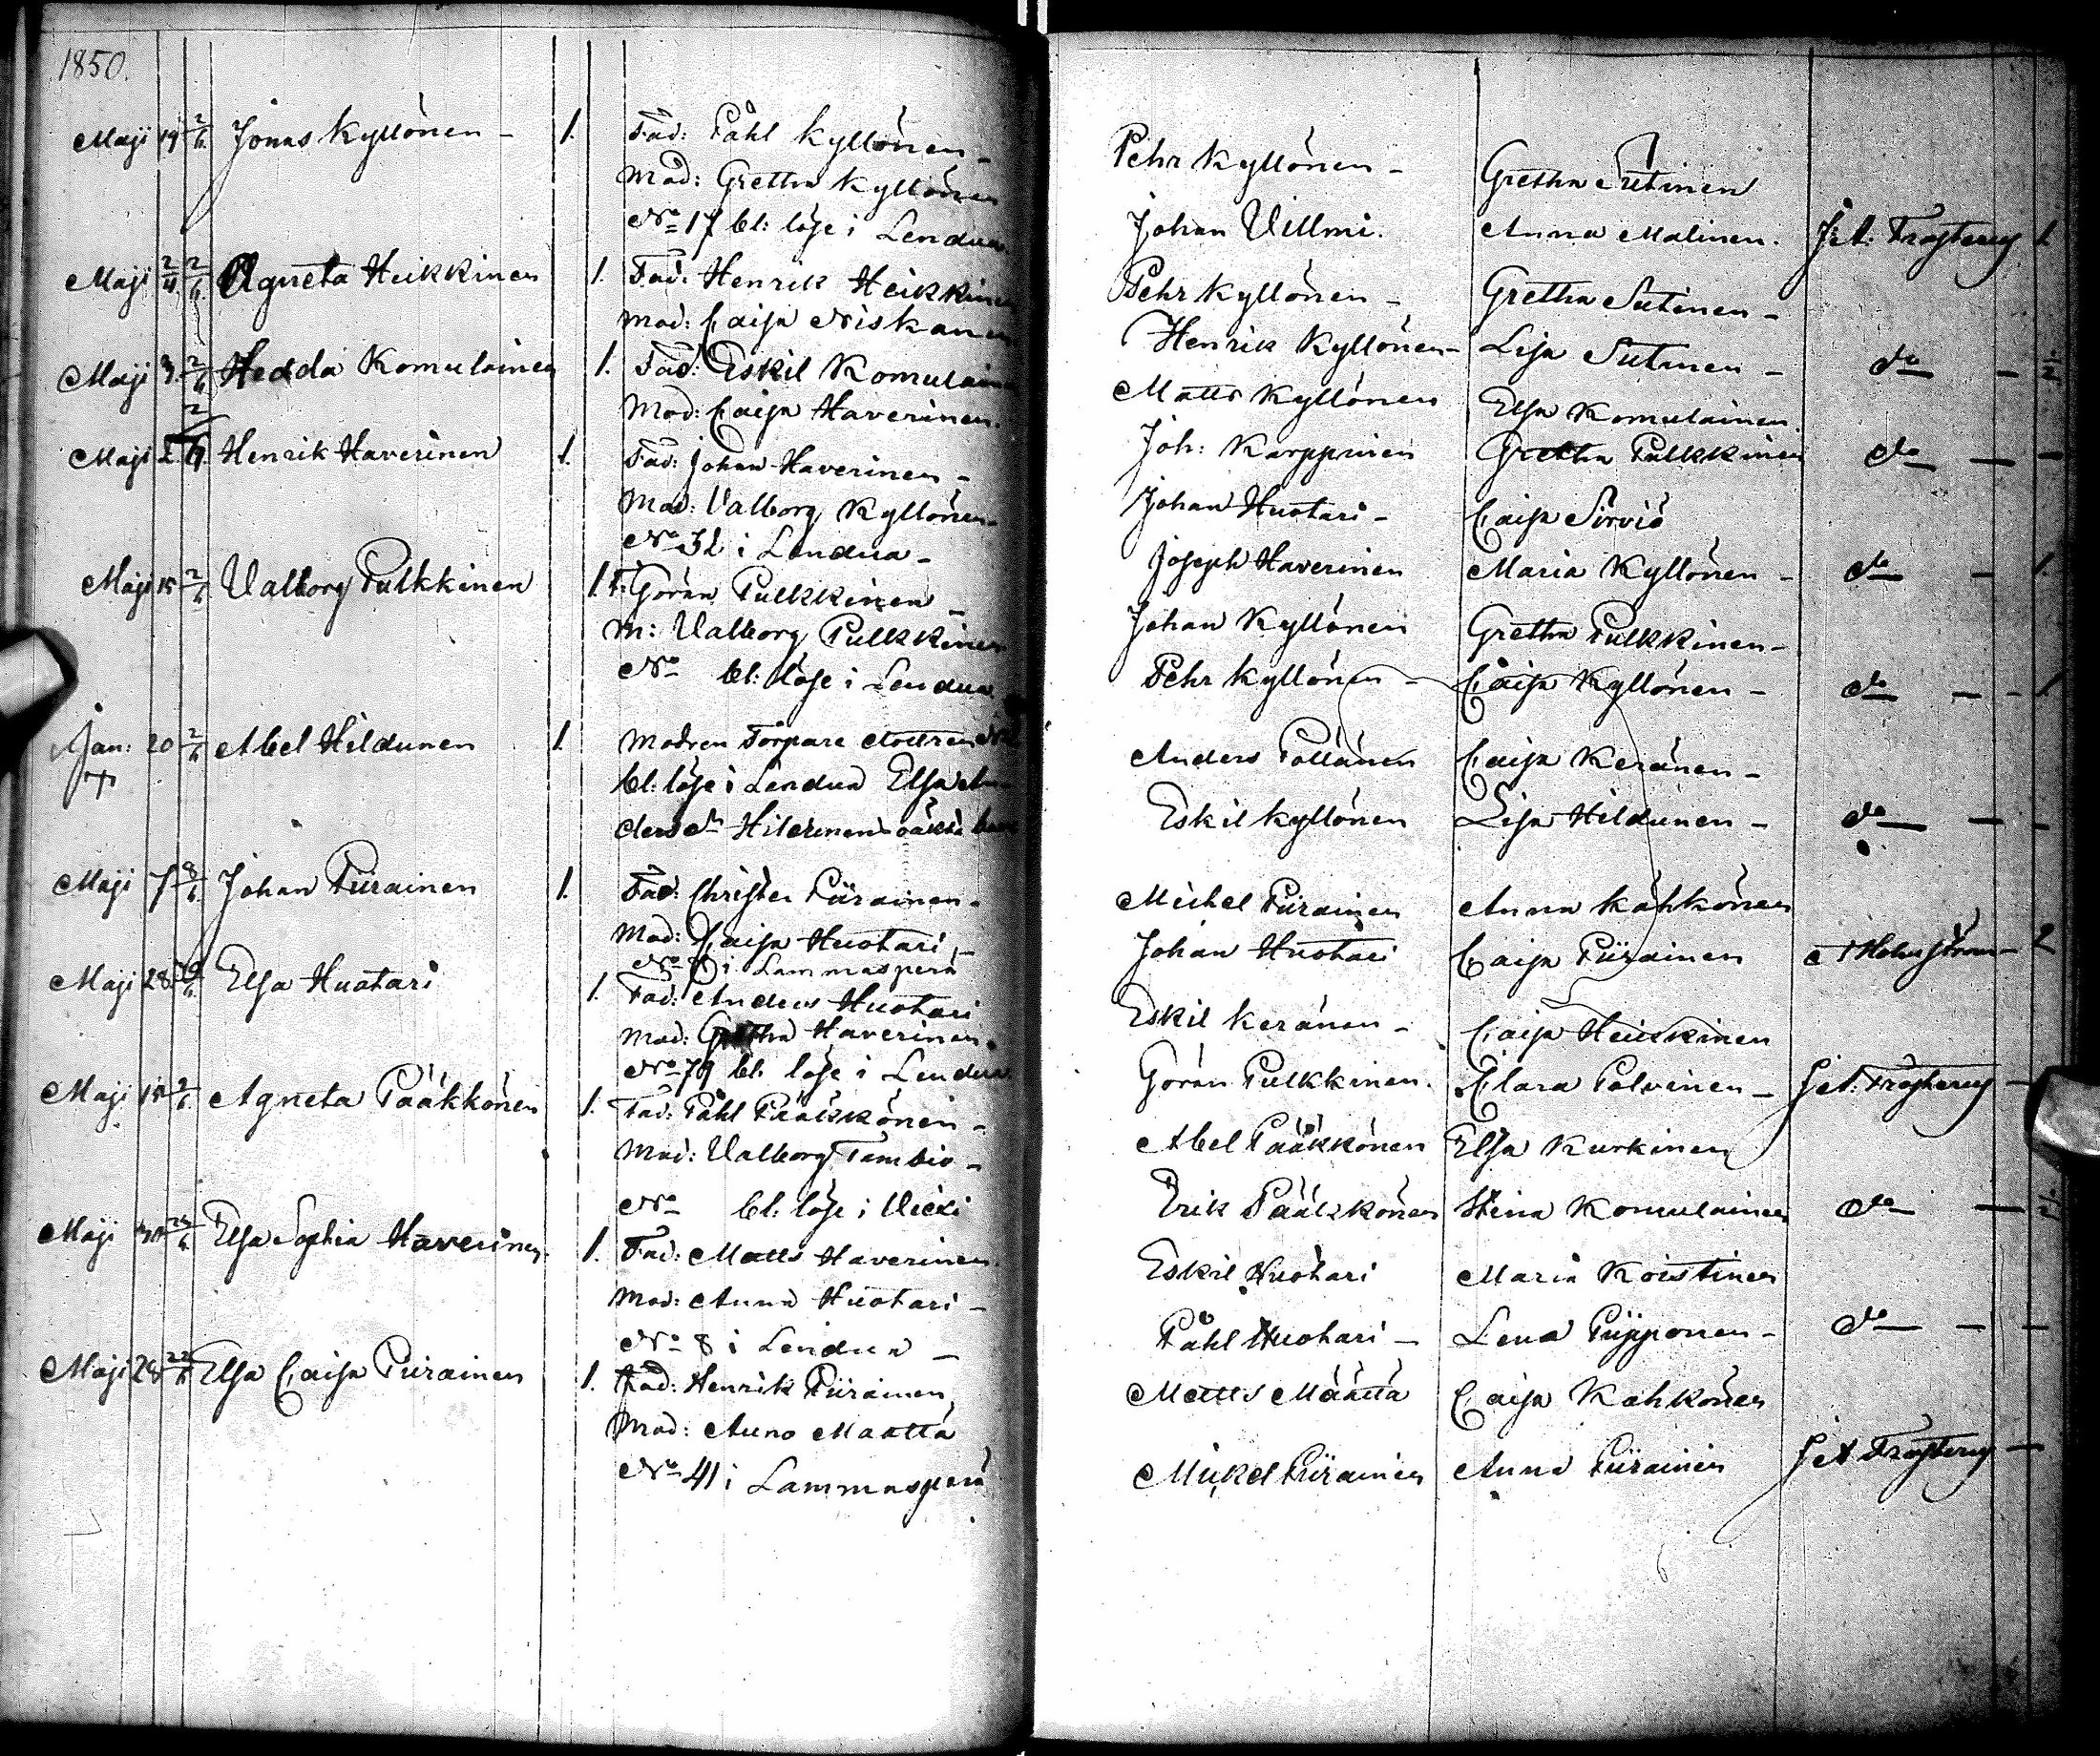 1850.
Maji 19 2/6 Jonas Kyllönen - 1. Fad: Påhl Kyllönen -
Mod: Gretha Kyllönen
No 17 bl: löse i Lendua
Maji 2/4 2/6 Agneta Heikkinen 1. Fad: Henrik Heikkinen
Mod: Caisa Niskanen
Maji 3 2/6 Hedda Komulainen 1. Fad: Eskil Komulainen
Mod: Caisa Haverinen.
Maji 2 2/6 Henrik Haverinen 1. Fad: Johan Haverinen -
Mod: Valborg Kyllönen
No 32 i Lendua -
Maji 15 2/6 Valborg Pulkkinen 1. F: Göran Pulkkinen -
M: Valborg Pulkkinen
No bl: löse i Lendua
Jan: 20 2/6 Abel Hildunen 1. Modren Torpare
bl: löse i Lendua Elsa
Hildunens oäkta barn
Maji 7 9/6 Johan Piirainen 1. Fad: Christer Piirainen -
Mod: Caisa Huotari -
No i Lammasperä
Maji 28 Elsa Huotari 1. Fad: Anders Huotari
Mod: Gretha Haverinen.
No 79 bl: löse i Lendua
Maji 15 9/6 Agneta Pääkkönen 1. Fad: Påhl Pääkkönen -
Mod: Valborg Tambio -
No bl: löse i Viexi
Maji Elsa Sophia Haverinen. 1. Fad: Matts Haverinen.
Mod: Anna Huotari -
No 8 i Lendua -
Maji 28 Elsa Caisa Piirainen 1. Fad: Henrik Piirainen
Mod: Anna Määttä
No 41 i Lammasperä
Pehr Kyllönen - Gretha Sutinen
Johan Villmi. Anna Malinen. 1.
Pehr Kyllönen - Gretha Sutinen -
Henrik Kyllönen - Lisa Sutinen - do - 1/2
Matts Kyllönen Elsa Komulainen.
Joh: Karppinen Gretha Pulkkinen do - -
Johan Huotari - Caisa Sirviö
Joseph Haverinen Maria Kyllönen - do - 1.
Johan Kyllönen Gretha Pulkkinen -
Pehr Kyllönen - Caisa Kyllönen - do - - 1.
Anders Pöllänen Caisa Keränen -
Eskil Kyllönen Lisa Hildunen - do - -
Michel Piirainen Anna Kähkönen
Johan Huotari Caisa Piirainen Holmström - 2
Eskil Keränen - Caisa Heikkinen
Göran Pulkkinen. Clara Polvinen - -
Abel Pääkkönen Elsa Kurkinen
Erik Pääkkönen Stina Komulainen do -
Eskil Huotari Maria Koistinen
Påhl Huotari - Lena Piipponen - do - -
Matts Määttä Caisa Kähkönen
Mickel Piirainen Anna Piirainen -